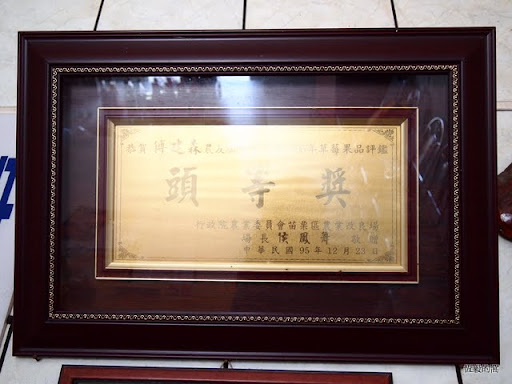 恭賀 傅建森 農友 年草莓果品評鑑
頭等獎
行政院農業委員會苗栗區農業改良場
場長 侯鳳舞 敬贈
中華民國95年12月23日